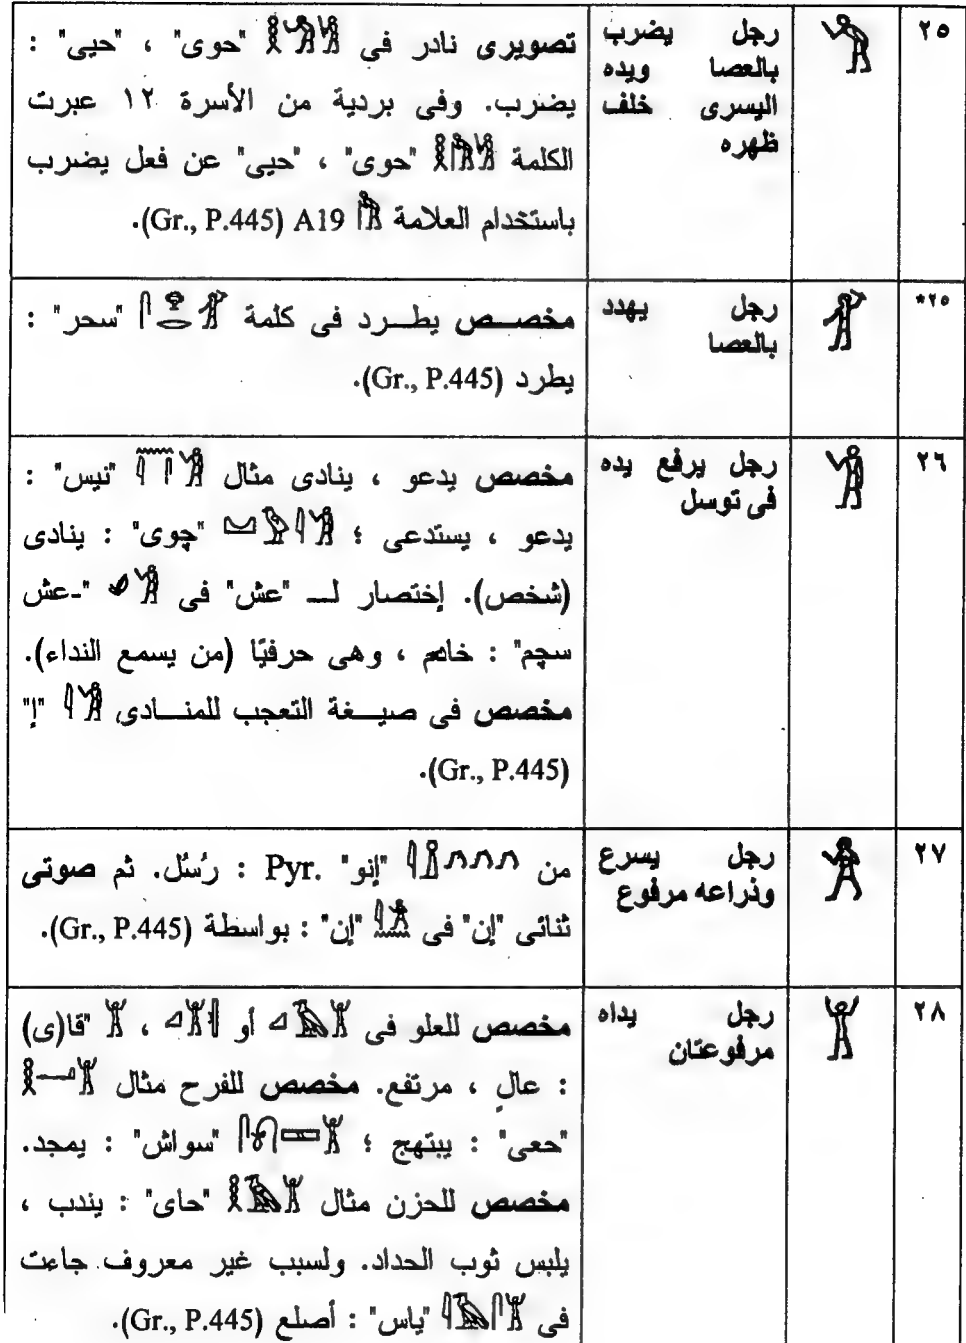 ٢٥
رجل يضرب
بالعصا ويده
اليسرى خلف
ظهره
تصويرى نادر فى "حوى" ، "حيى" :
يضرب. وفى بردية من الأسرة ١٢ عبرت
الكلمة "حوى" ، "حيى" عن فعل يضرب
باستخدام العلامة A19 (Gr., P.445).
٢٥*
رجل يهدد
بالعصا
مخصص يطرد فى كلمة "سحر" :
يطرد (Gr., P.445).
٢٦
رجل يرفع يده
فى توسل
مخصص يدعو ، ينادى مثال "نيس" :
يدعو ، يستدعى ؛ "چوى" : ينادى
(شخص). إختصار لـ "عش" فى "-عش
سچم" : خادم ، وهى حرفيًا (من يسمع النداء).
مخصص فى صيغة التعجب للمنادى "إ"
(Gr., P.445).
٢٧
رجل يسرع
وذراعه مرفوع
من "إنو" Pyr. : رُسُل. ثم صوتى
ثنائى "إن" فى "إن" : بواسطة (Gr., P.445).
٢٨
رجل يداه
مرفوعتان
مخصص للعلو فى أو ، "قا(ى)
: عالٍ ، مرتفع. مخصص للفرح مثال
"حعى" : يبتهج ؛ "سواش" : يمجد.
مخصص للحزن مثال "حاى" : يندب ،
يلبس ثوب الحداد. ولسبب غير معروف جاءت
فى "ياس" : أصلع (Gr., P.445).